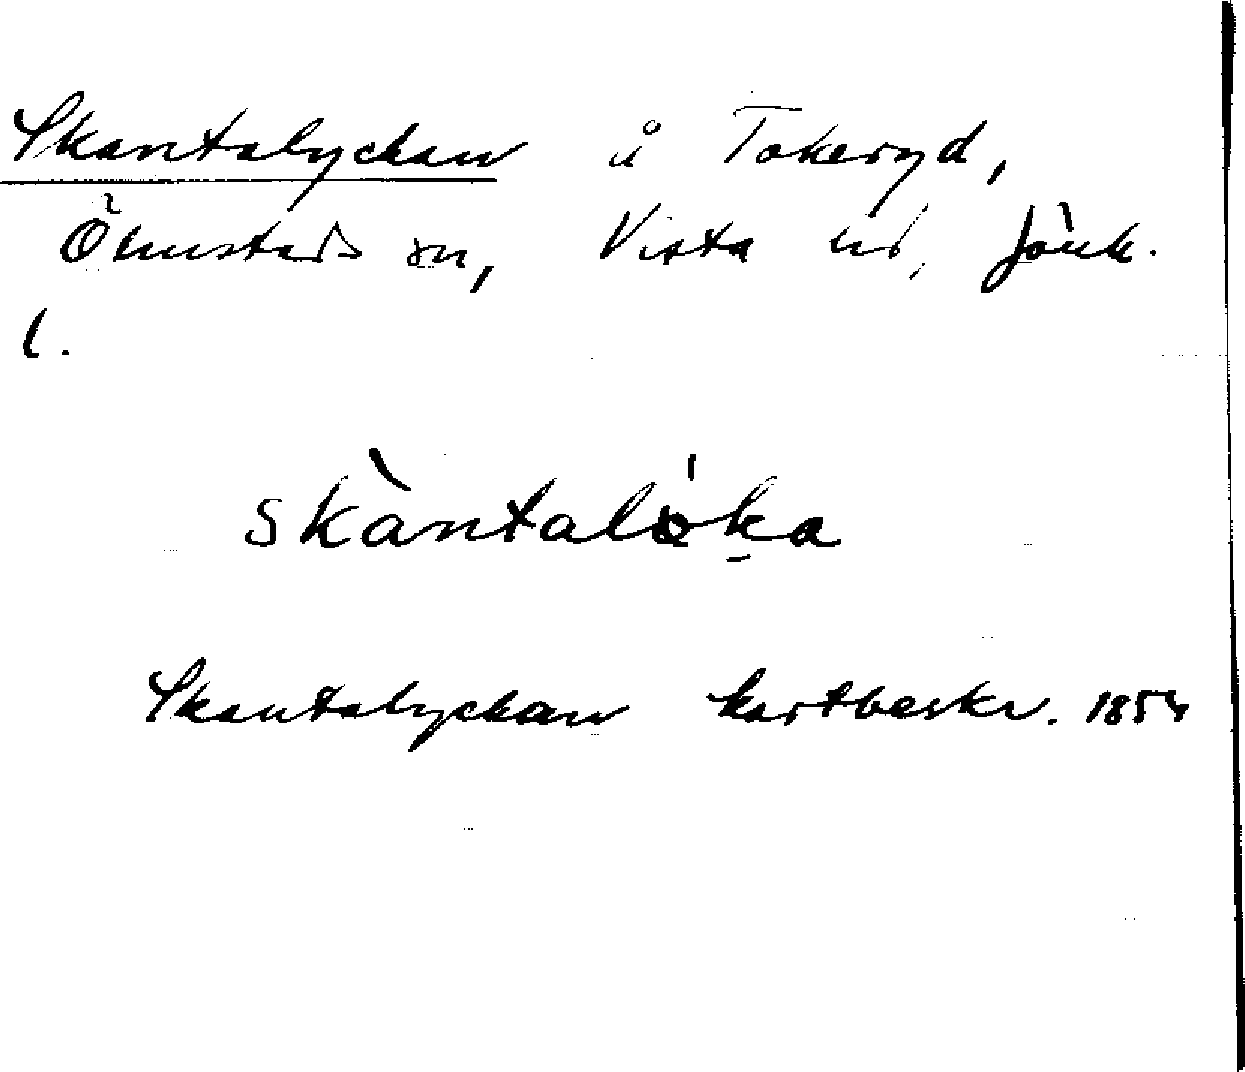 Skantalyckan å Tokeryd,
Ölmstads sn, Vista hd, Jönk.
l.
skàntalóka
Skantalyckan kartbeskr. 1854